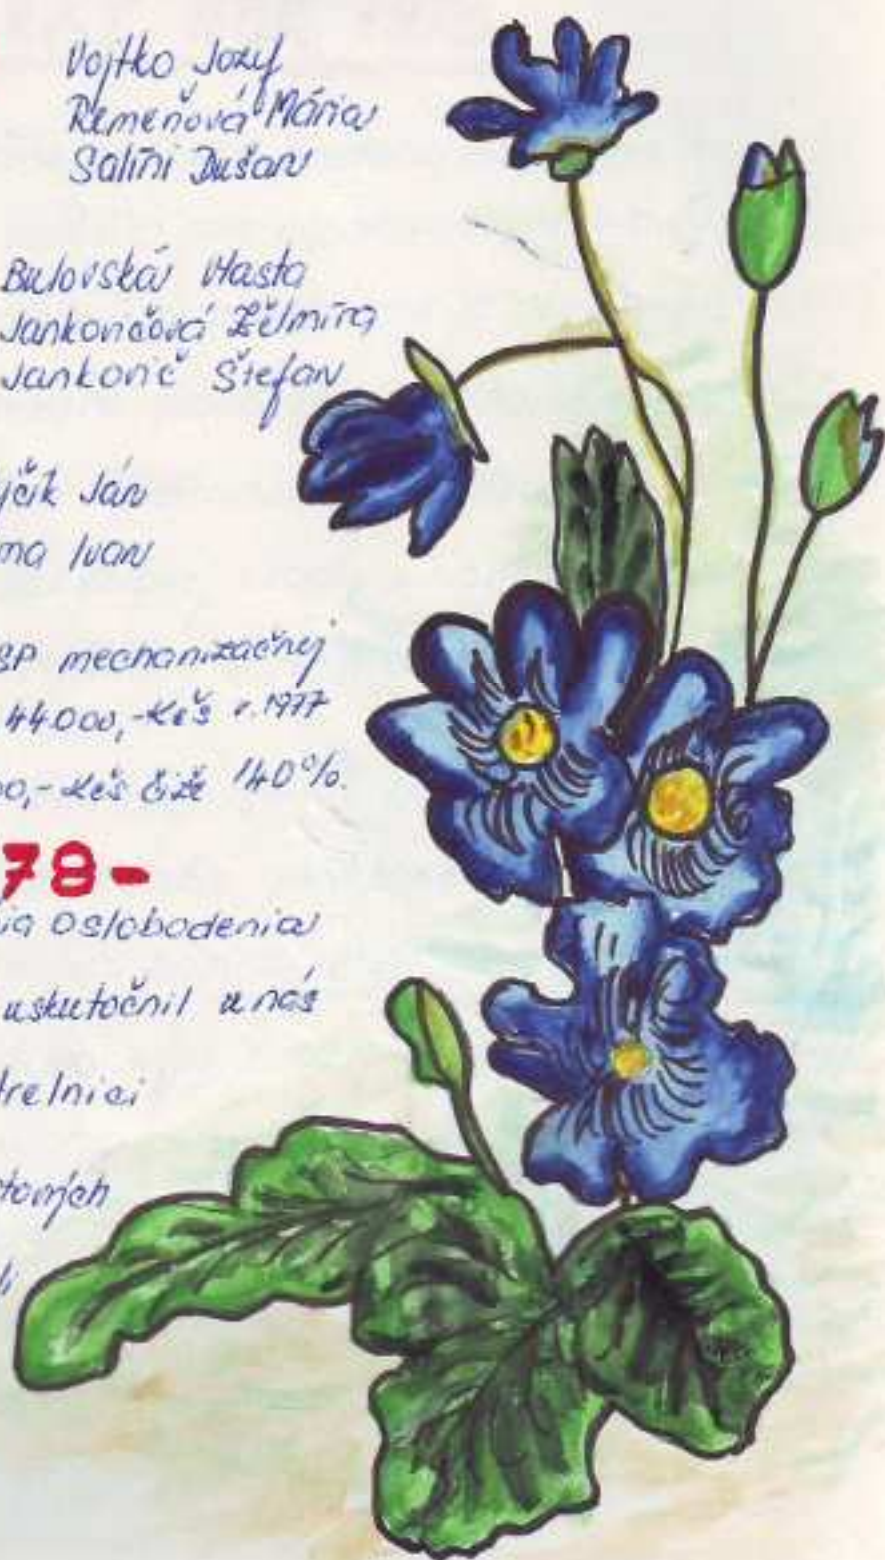 Vojtko Jozif
Remeňová Mária
Salíni Dušan
Bulovská Vlasta
Jankovičová Želmíra
Jankovič Štefan
jčík Ján
ma Ivan
SP mechanizačnej
44000,-Kčs r.1977
00,-Kčs čiže 140%.
78-
ia Oslobodenia
uskutočnil u nás
trelnici